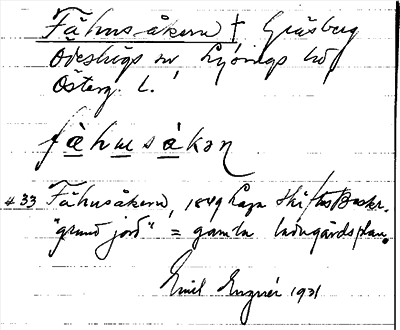 Fähusåkern † Gräsberg
Ödeshögs sn, Lysings hd
Österg. l.
fä̀husåkən
433 Fähusåkern, 1849 Laga Skiftes Beskr.
"grund jord" = gamla ladugårdsplan.
Emil Engnér 1931